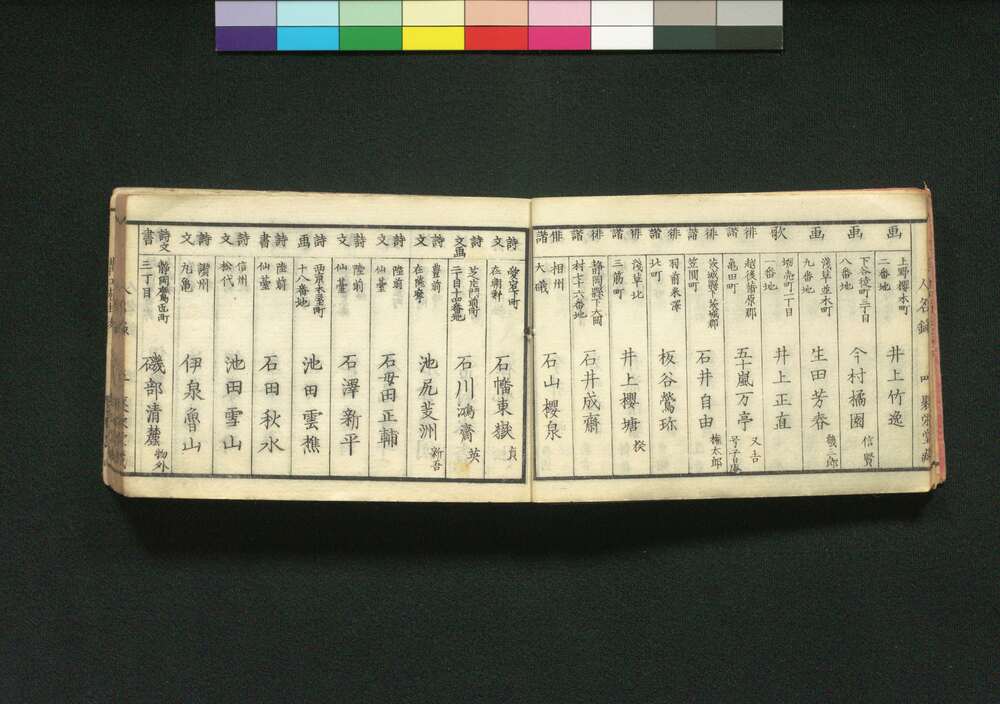 画 上野櫻木町二番地 井上竹逸
画 下谷徒町三丁目八番地 今村橘園 信賢
画 淺草並木町九番地 生田芳春 幾三郎
歌 一番地 井上正直
俳諧 越後蒲原郡亀田町 五十嵐万亭 又吉
俳諧 茨城縣茨城郡笠間町 石井自由 権太郎
俳諧 羽前米澤北町 板谷鶯珎
俳諧 淺草北三筋町 井上櫻塘 揆
俳諧 静岡縣下大岡村七十六番地 石井成齋
俳諧 相州大磯 石山櫻泉
詩文 愛宕下町在朝鮮 石幡東嶽 貞
詩文画 二丁目十四番地 石川鴻齋 英
詩文 豊前在薩摩 池尻茭洲 新吾
詩文 陸前仙臺 石母田正輔
詩文 陸前仙臺 石澤新平
詩画 十八番地 池田雲樵
詩書 陸前仙臺 石田秋水
詩文 信州松代 池田雪山
詩文 讃州丸亀 伊泉魯山
詩文書 静岡鷹匠町三丁目 磯部清麓 物外
人名録
聚栄堂蔵